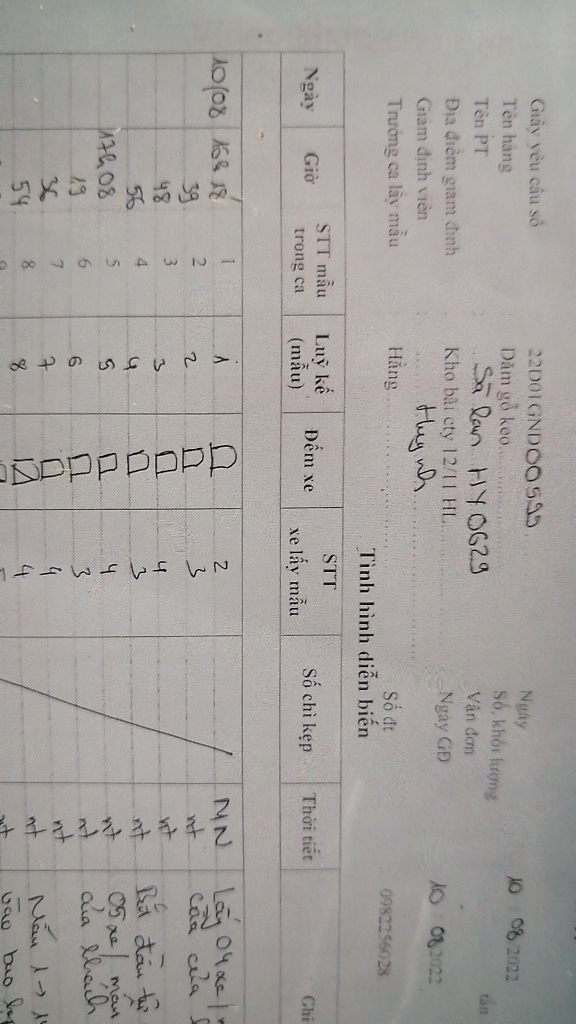 Giấy yêu cầu số 22D01GND00599 Ngày 10 / 08 2022
Tên hàng Dăm gỗ keo Số, khối lượng tấn
Tên PT Sà lan HY0629 Vận đơn
Địa điểm giám định Kho bãi cty 12/11 HL Ngày GĐ 10 / 08 2022
Giám định viên Huỳnh
Trưởng ca lấy mẫu Hằng Số đt : 0982256028
Tình hình diễn biến
Ngày Giờ STT mẫu trong ca Luỹ kế (mẫu) Đếm xe STT xe lấy mẫu Số chì kẹp Thời tiết Ghi
10/08 16h18 1 1 2 MN Lấy 04 xe/
39 2 2 3 nt cầu của
48 3 3 4 nt
56 4 4 3 nt Bắt đầu từ
17h08 5 5 4 nt 05 xe/ mẫu
19 6 6 3 nt của khách
36 7 7 4 nt
54 8 8 4 nt Mẫu 1 →
vào bao